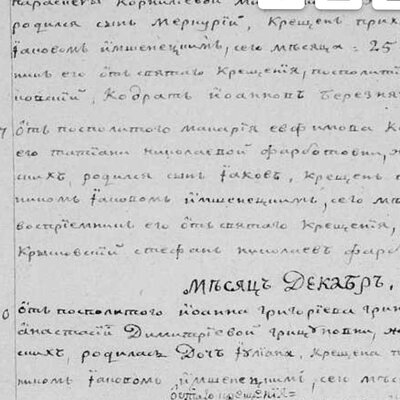 Параскевы Корнилѣевой Ми
родился сынъ Меркурій, Крещенъ прих
Іаковомъ Имшенецкимъ, сего мѣсяца = 25
никъ его ѿтъ святаго Крещенія, посполитій
новскій, Кодратъ Іоанновъ Березня
7 ѿтъ посполитого Макарія Евфимова К
его Татіани Николаевой Фарботовни, ж
скихъ, родился сынъ Іаковъ, Крещенъ п
никомъ Іаковомъ Имшенецкимъ, сего мѣ
воспріемникъ его ѿтъ святаго Крещенія,
Крыловскій Стефанъ Николаевъ Фарб
Мѣсяцъ Декабръ.
0 ѿтъ посполитого Іоанна Григоріева Гри
Анастасіи Димитріевой Грицуновни, ж
скихъ, родилась Дочъ Іуліана, Крещена п
никомъ Іаковомъ Имшенецкимъ, сего мѣся
святаго крещенія=